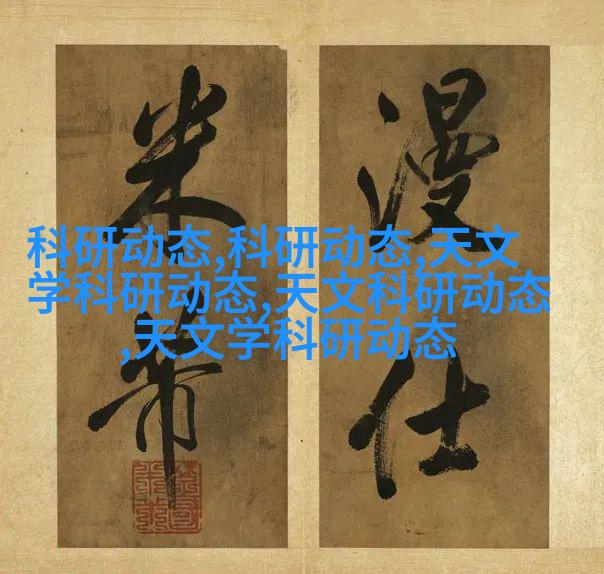 科研动态,科研动态,天文
学科研动态,天文科研动态
,天文学科研动态
漫仕
米芾